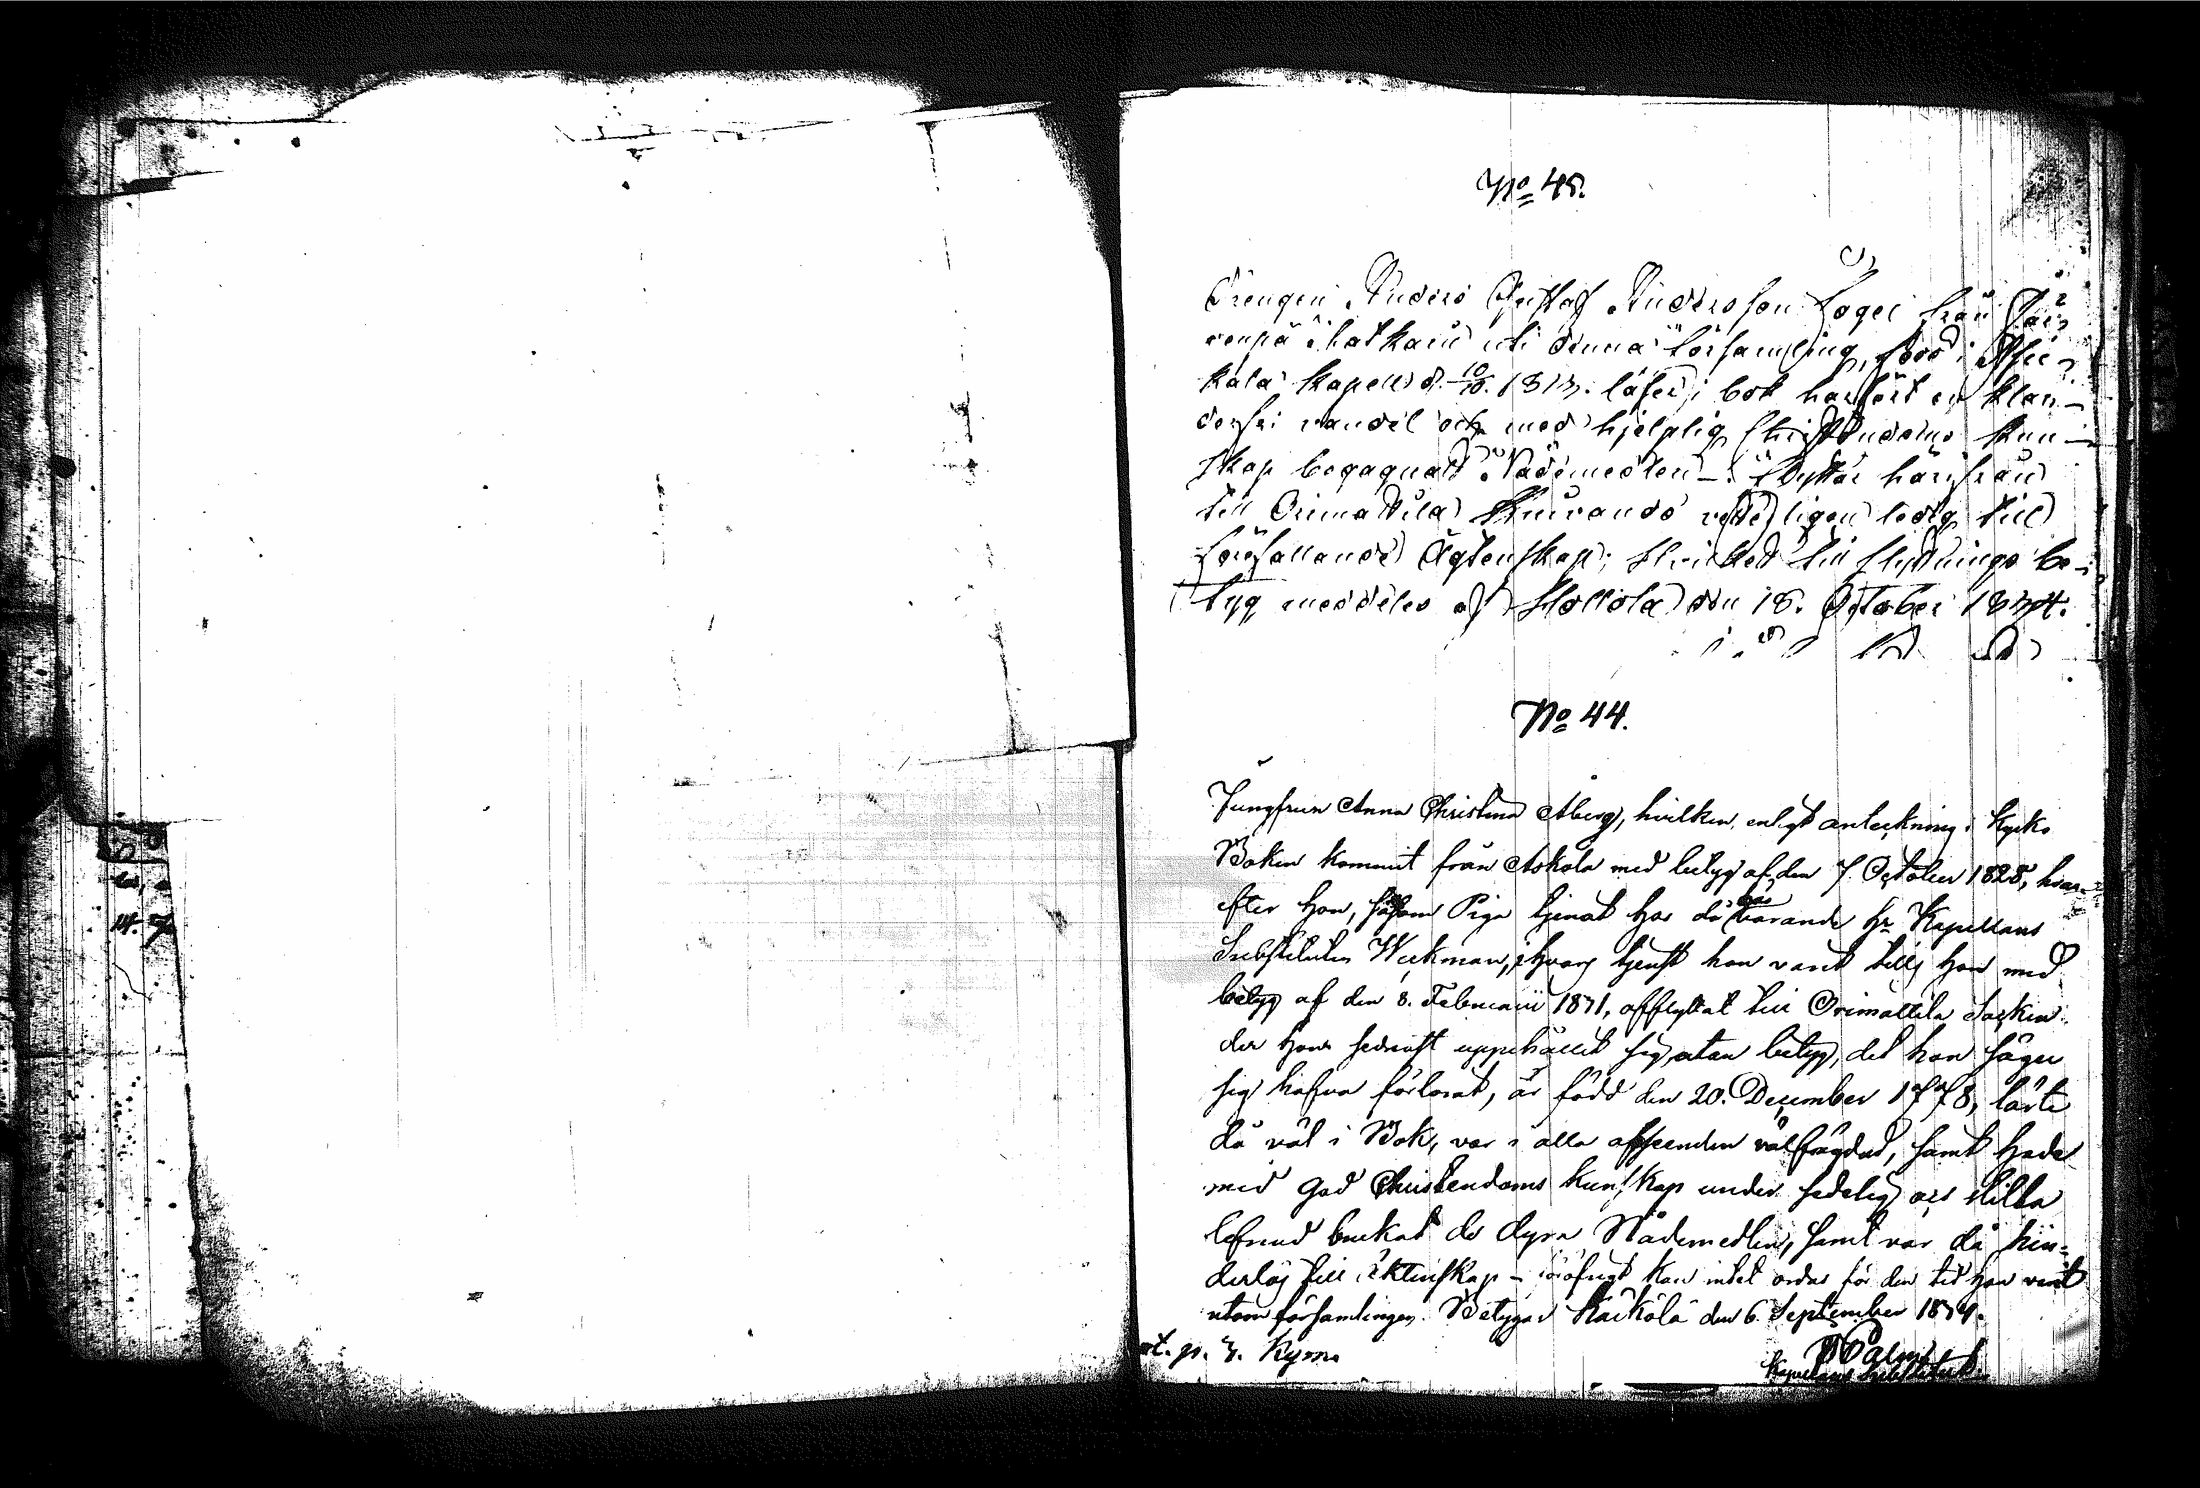 No 43.
Drengen Anders Gustaf Andersson Loger från Jär-
venpä i hatkais uti denna församling, född i Asic-
kala kapell d. 10/10. 1813. läser i bok har fört en klan-
derfri vandel och med hjelplig Christendoms kun-
skap begagnat Nådemedlen. – flyttar härifrån
till Orimattila Kuivando vederligen ledig till
förefallande Ägtenskap; Hvilket till flyttnings be-
tyg meddeles af Hollola den 18. October 1834.
No 44.
Jungfrun Anna Christina Åberg, hvilken, enligt anteckning i Kyrko
Boken kommit från Askola med betyg af den 7. October 1828, hvar-
efter hon, såsom Piga tjenat hos då varande hr Kapellans
Substituten Weckman, i hvars tjenst hon varit tills hon med
betyg af den 8. Februarii 1831, afflyttat till Orimattila Sockn.
der hon sedermst uppehållit sig utan betyg, det hon säger
sig hafva förlorat, är född den 20. December 1778, läste
då väl i Bok, var i alla afseenden välfrägdad, samt hade
med god Christendoms kunskap under sedelig och stilla
lefnad brukat de dyra Nådemedlen, samt var då hin-
derlös till äktenskap – öfrigt kan intet ordas för den tid hon varit
utom församlingen. Betygar Kärkölä den 6. September 1834.
Palm
Kapellans Substitut.
at. p. 3. Kym.
14. 7.